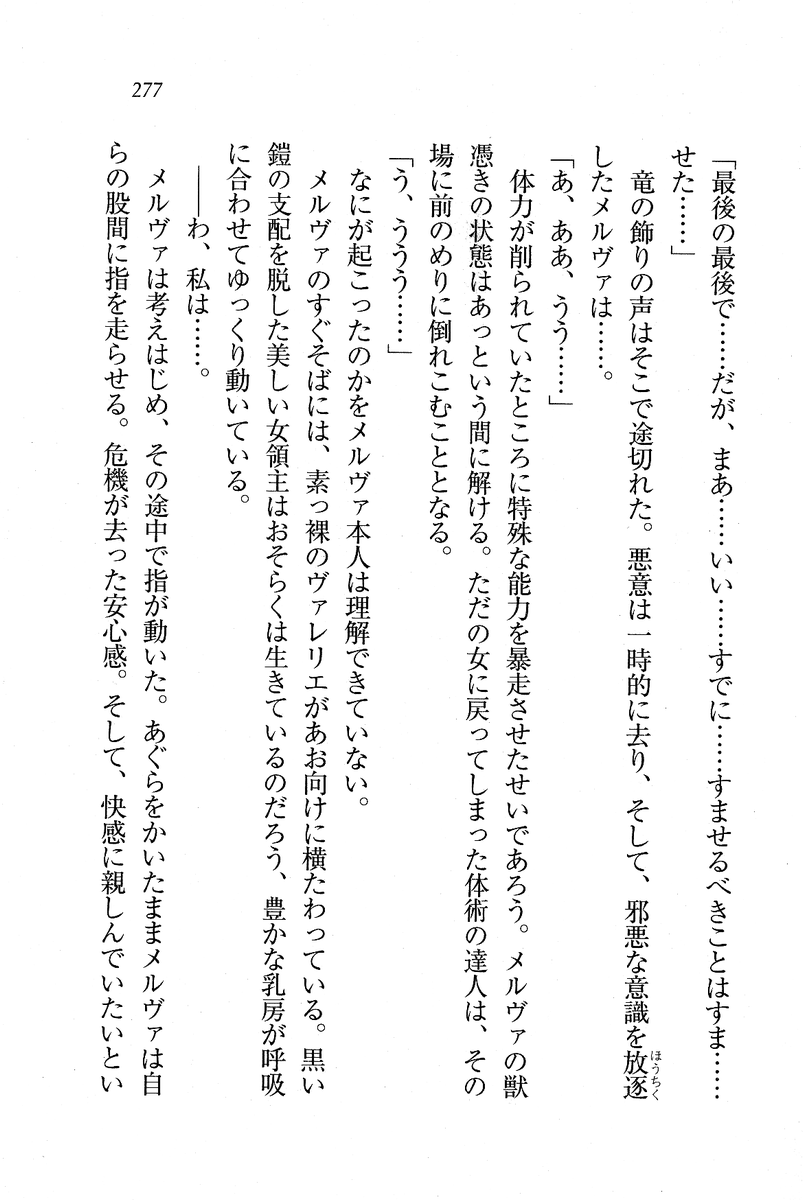 277
「最後の最後で……だが、まあ……いい……すでに……すませるべきことはすま……
せた……」
竜の飾りの声はそこで途切れた。悪意は一時的に去り、そして、邪悪な意識を放逐ほうちく
したメルヴァは……。
「あ、ああ、うう……」
体力が削られていたところに特殊な能力を暴走させたせいであろう。メルヴァの獣
憑きの状態はあっという間に解ける。ただの女に戻ってしまった体術の達人は、その
場に前のめりに倒れこむこととなる。
「う、ううう……」
なにが起こったのかをメルヴァ本人は理解できていない。
メルヴァのすぐそばには、素っ裸のヴァレリエがあお向けに横たわっている。黒い
鎧の支配を脱した美しい女領主はおそらくは生きているのだろう、豊かな乳房が呼吸
に合わせてゆっくり動いている。
――わ、私は……。
メルヴァは考えはじめ、その途中で指が動いた。あぐらをかいたままメルヴァは自
らの股間に指を走らせる。危機が去った安心感。そして、快感に親しんでいたいとい